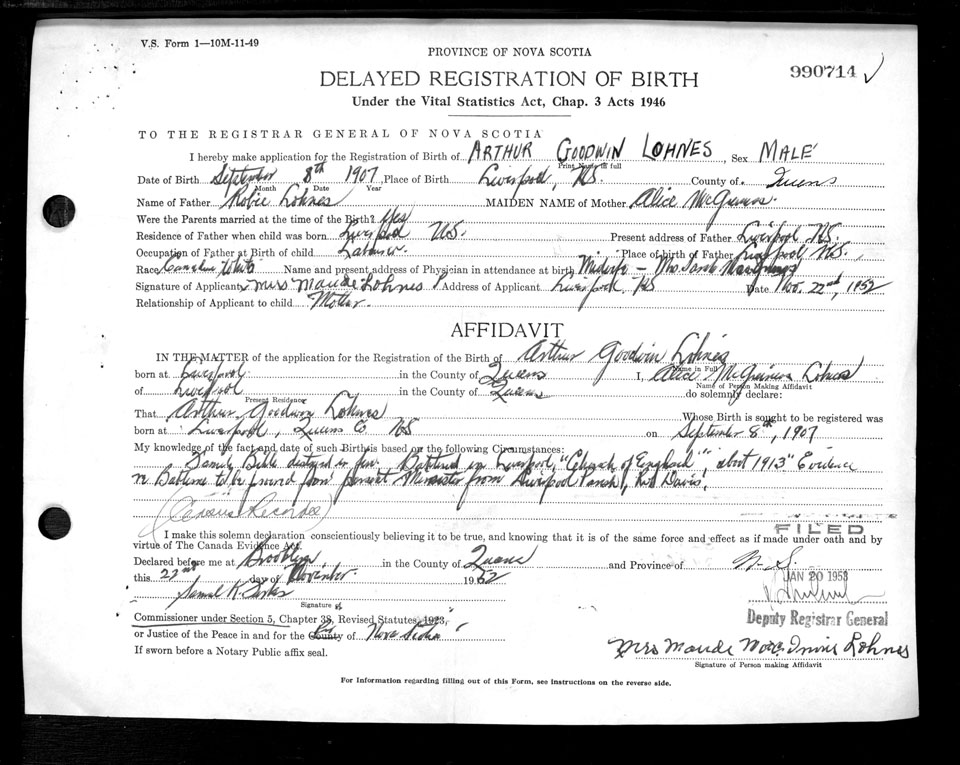 V.S. Form 1—10M-11-49
PROVINCE OF NOVA SCOTIA
990714
DELAYED REGISTRATION OF BIRTH
Under the Vital Statistics Act, Chap. 3 Acts 1946
TO THE REGISTRAR GENERAL OF NOVA SCOTIA
I hereby make application for the Registration of Birth of ARTHUR GOODWIN LOHNES, Sex MALE
Print Name in full
Date of Birth September 8th 1907, Place of Birth Liverpool, N.S. County of Queens
Month Date Year
Name of Father Robie Lohnes MAIDEN NAME of Mother Alice
Were the Parents married at the time of the Birth? Yes
Residence of Father when child was born Liverpool N.S. Present address of Father Liverpool N.S.
Occupation of Father at Birth of child Laborer Place of birth of Father Liverpool N.S.
Race Canadian White Name and present address of Physician in attendance at birth Midwife — Mrs. Sarah
Signature of Applicant Mrs Maude Lohnes Address of Applicant Liverpool NS Date Nov. 22nd, 1952
Relationship of Applicant to child Mother.
AFFIDAVIT
IN THE MATTER of the application for the Registration of the Birth of Arthur Goodwin Lohnes
Name in Full
born at Liverpool in the County of Queens I, Alice Lohnes
Name of Person Making Affidavit
of Liverpool in the County of Queens do solemnly declare:
Present Residence
That Arthur Goodwin Lohnes Whose Birth is sought to be registered was
born at Liverpool, Queens Co NS on September 8th, 1907
My knowledge of the fact and date of such Birth is based on the following Circumstances:
Family Bible destroyed in fire. Baptized in Liverpool, "Church of England", about 1913" Evidence
re Baptism to be found from present Minister from Liverpool Parish, Rev Davis.
(Census Recorded)
FILED
I make this solemn declaration conscientiously believing it to be true, and knowing that it is of the same force and effect as if made under oath and by
virtue of The Canada Evidence Act.
Declared before me at Brooklyn in the County of Queens and Province of N.S.
this 22nd day of November 1952
JAN 20 1953
Signature of
Deputy Registrar General
Commissioner under Section 5, Chapter 38, Revised Statutes, 1923,
or Justice of the Peace in and for the County of Nova Scotia
Mrs Maude Lohnes
If sworn before a Notary Public affix seal.
Signature of Person making Affidavit
For Information regarding filling out of this Form, see instructions on the reverse side.